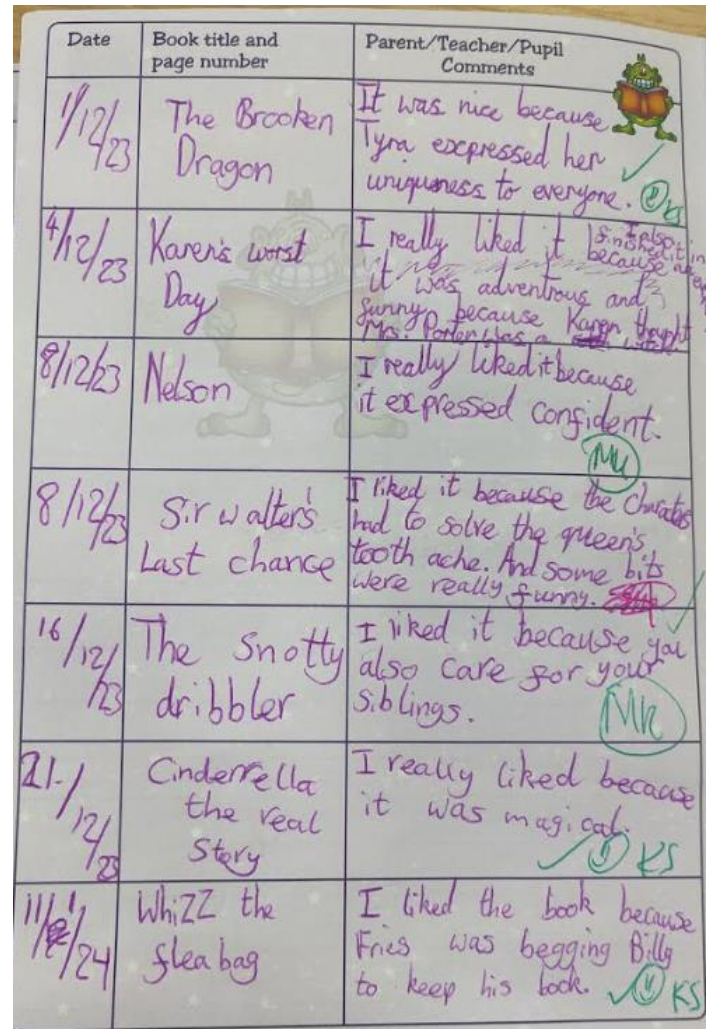 Date
Book title and
page number
Parent/Teacher/Pupil
Comments
1/12/23
The Brooken
Dragon
It was nice because
Tyra excpressed her
uniqueness to everyone.
KS
4/12/23
Karen's worst
Day
I really liked it because
I also
finished it in
it was adventrous and
funny because Karen thought
Mrs. Porter was a
8/12/23
Nelson
I really liked it because
it excpressed confident.
MK
8/12/23
Sir walter's
Last chance
I liked it because the
had to solve the queen's
tooth ache. And some bits
were really funny.
16/12/23
The Snotty
dribbler
I liked it because you
also care for your
siblings.
MK
21/12/23
Cinderrella
the real
Story
I really liked because
it was magical.
KS
11/1/24
WhiZZ the
flea bag
I liked the book because
Fries was begging Billy
to keep his book.
KS